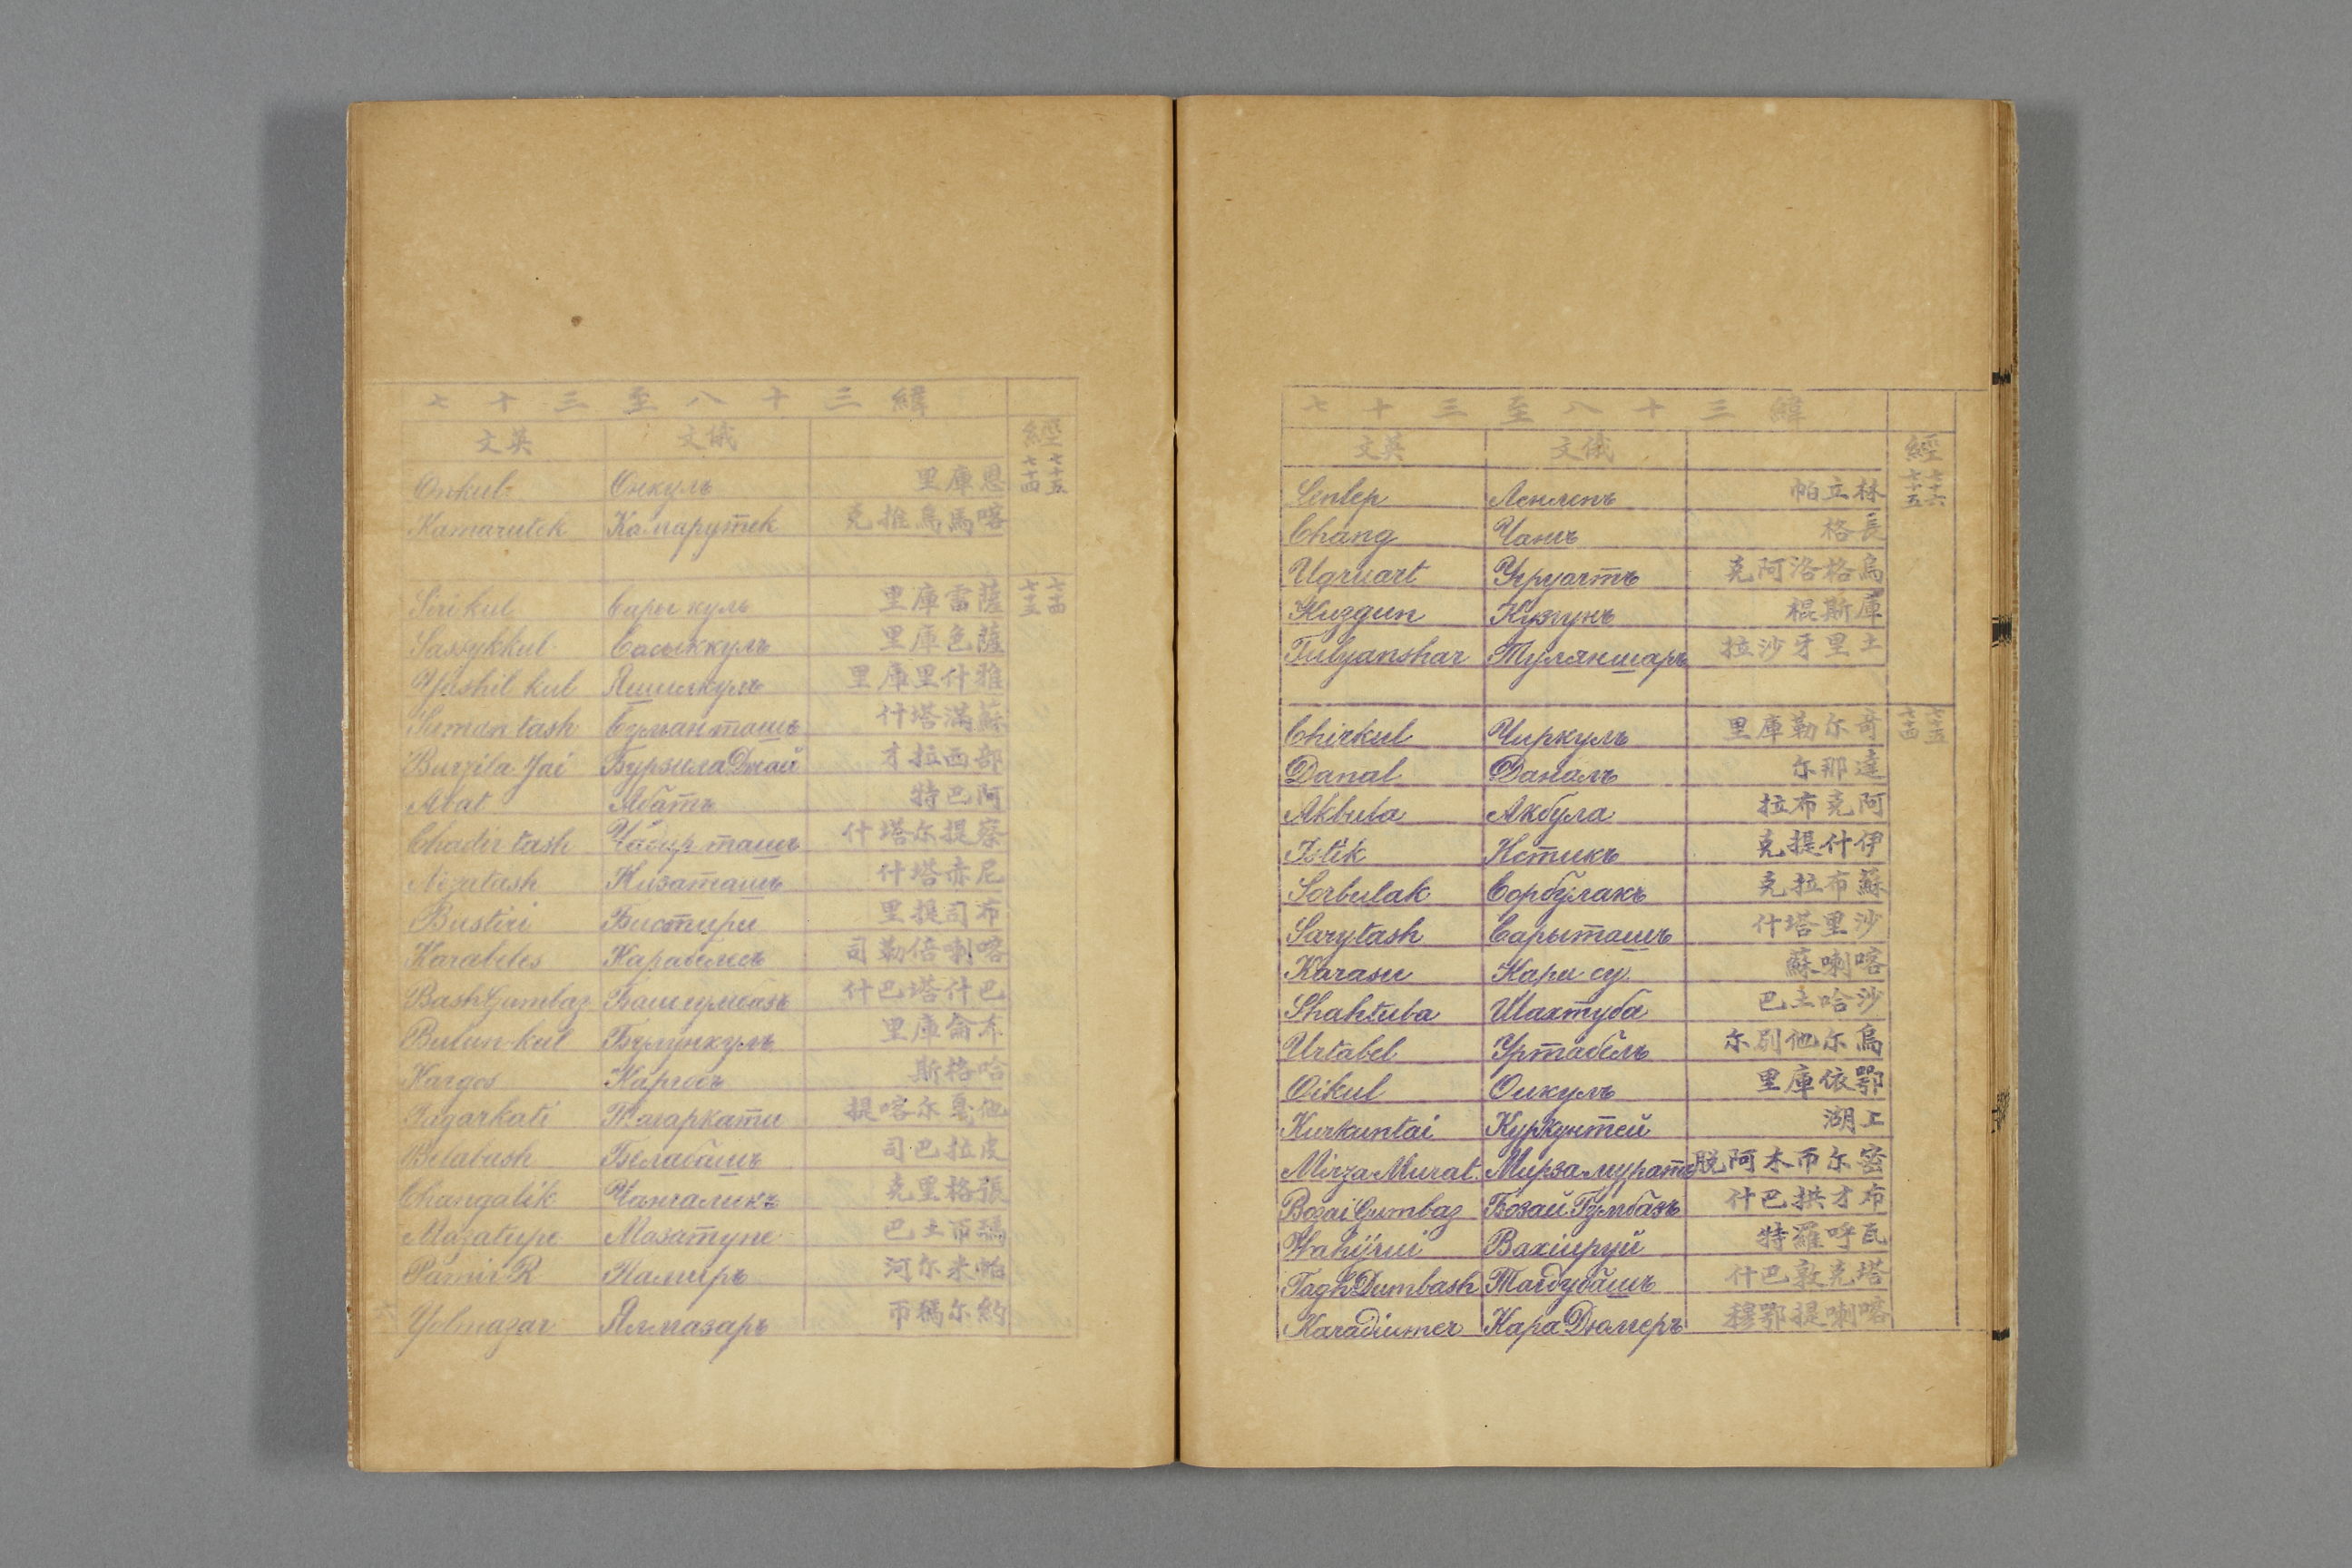 七十三至八十三緯
文英 文俄 經 七十六 七十五
Linlep Ленлепъ 帕立林
Chang Чангъ 格長
Ugruart Угруартъ 克阿洛格烏
Kuzgun Кузгунъ 棍斯庫
Tulyanshar Тулянشаръ 拉沙牙里土
七十五 七十四
Chirkul Чиркуль 里庫勒尔奇
Danal Даналъ 尔那達
Akbula Акбула 拉布克阿
Istik Истикъ 克提什伊
Sorbulak Сорбулакъ 克拉布蘇
Sarytash Сарыташъ 什塔里沙
Karasu Кари су 蘇喇喀
Shahtuba Шахтуба 巴土哈沙
Urtabel Уртабель 尔别他尔烏
Oikul Оикуль 里庫依鄂
Kurkuntai Куркунтей 湖工
Mirza Murat Мирзамуратъ 脱阿木币尔密
Bozai Gumbaz Бозай Гумбазъ 什巴拱才布
Wahijrui Вахіируй 特羅呼瓦
Tagh Dumbash Тагдубашъ 什巴敦克塔
Karadiumer Кара Дюмеръ 穆鄂提喇喀
七十三至八十三緯
文英 文俄 經 七十五 七十四
Onkul Онкуль 里庫恩
Kamarutek Камарутек 克推烏馬喀
七十四 七十三
Siri kul Сары куль 里庫雷薩
Sassykkul Сасыккуль 里庫色薩
Yashil kul Яшилкуль 里庫里什雅
Suman tash Суманташъ 什塔滿蘇
Burzila Jai Бурзила Джай 才拉西部
Abat Абатъ 特巴阿
Chadir tash Чадир ташъ 什塔尔提察
Nizatash Низаташъ 什塔赤尼
Bustiri Бистири 里提司布
Karabeles Карабелесъ 司勒倍喇喀
Bash Gumbaz Башгумбазъ 什巴塔什巴
Bulun-kul Булункуль 里庫侖布
Kargos Каргосъ 斯格哈
Tagarkati Тагаркати 提喀尔戛他
Belabash Белабашъ 司巴拉皮
Changalik Чангаликъ 克里格張
Mazatupe Мазатупе 巴土币瑪
Pamir R Памиръ 河尔米帕
Yolmazar Ялмазаръ 币瑪尔約